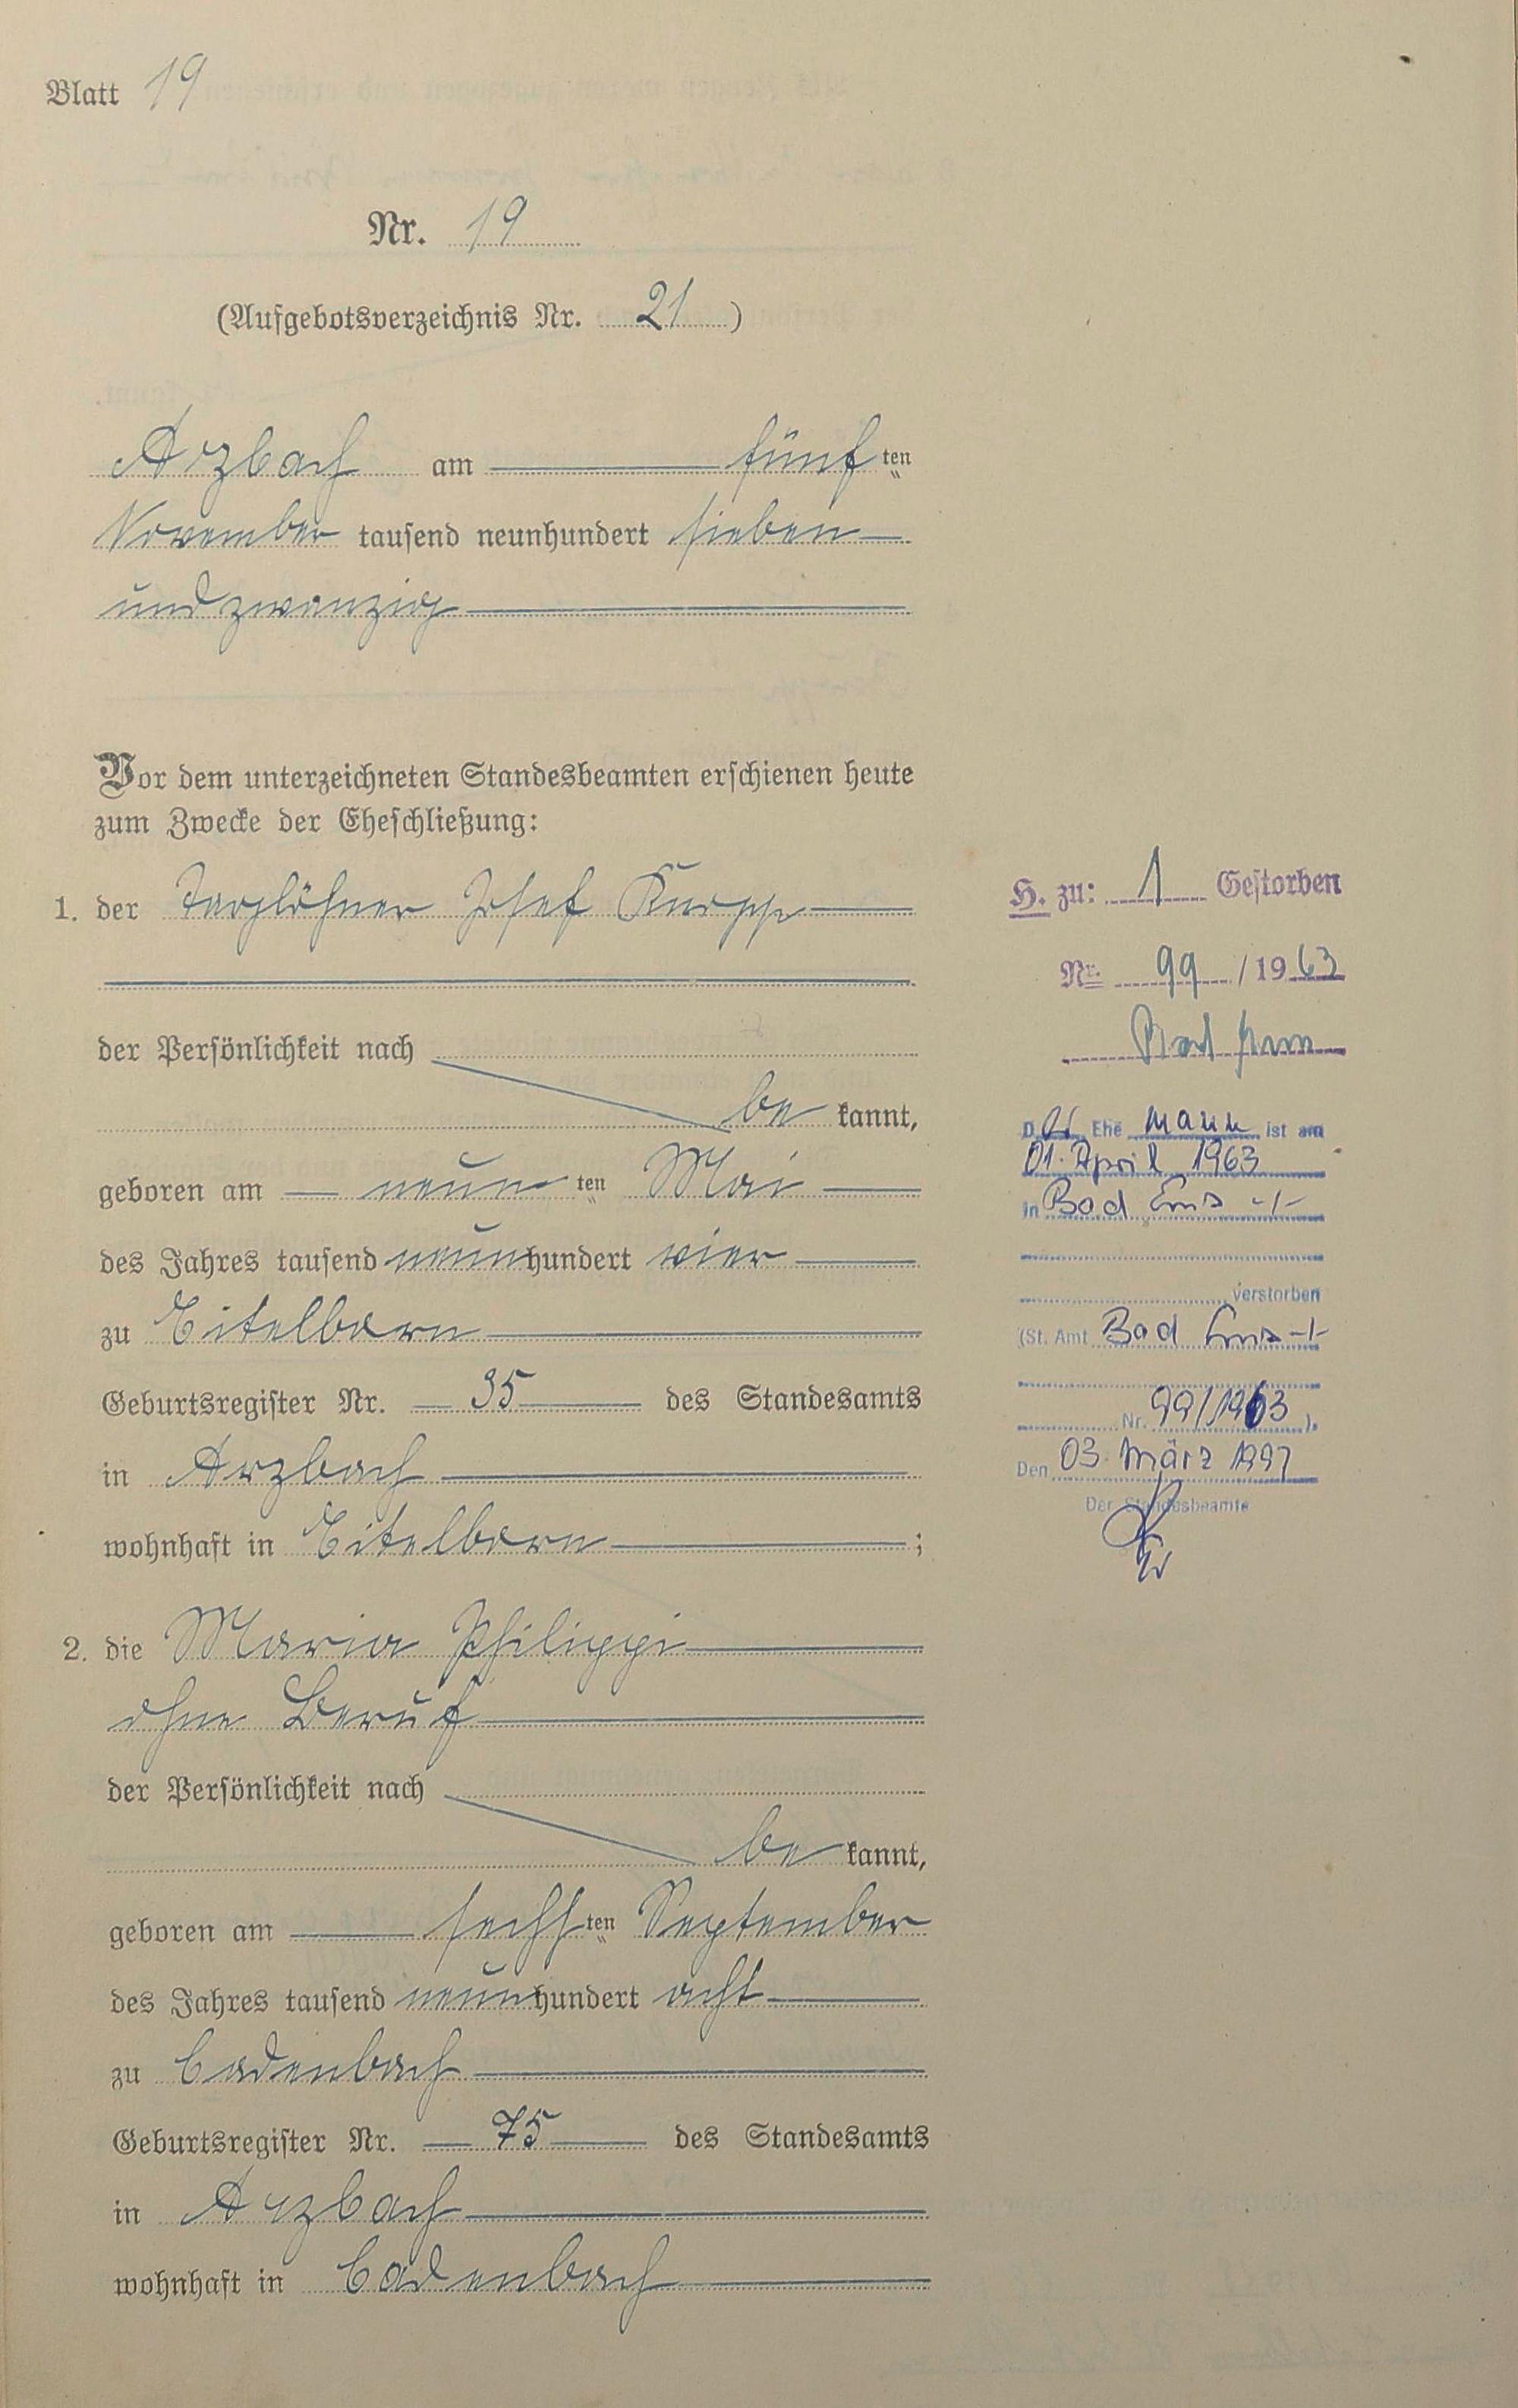 Blatt 19
Nr. 19
(Aufgebotsverzeichnis Nr. 21)
Arzbach am fünf ten
November tausend neunhundert sieben
undzwanzig
Vor dem unterzeichneten Standesbeamten erschienen heute
zum Zwecke der Eheschließung:
1. der Taglöhner Josef Knopp
der Persönlichkeit nach
be kannt,
geboren am neun ten Mai
des Jahres tausend neun hundert vier
zu Eitelborn
Geburtsregister Nr. 35 des Standesamts
in Arzbach
wohnhaft in Eitelborn ;
2. die Maria Philippi
ohne Beruf
der Persönlichkeit nach
be kannt,
geboren am sechs ten September
des Jahres tausend neun hundert acht
zu Cadenbach
Geburtsregister Nr. 75 des Standesamts
in Arzbach
wohnhaft in Cadenbach
H. zu: 1 Gestorben
Nr. 99 / 1963
Bad Ems
Der Ehe mann ist am
01. April 1963
in Bad Ems -/-
verstorben
(St. Amt Bad Ems -/-
Nr. 99/1963 ).
Den 03. März 1997
Der Standesbeamte